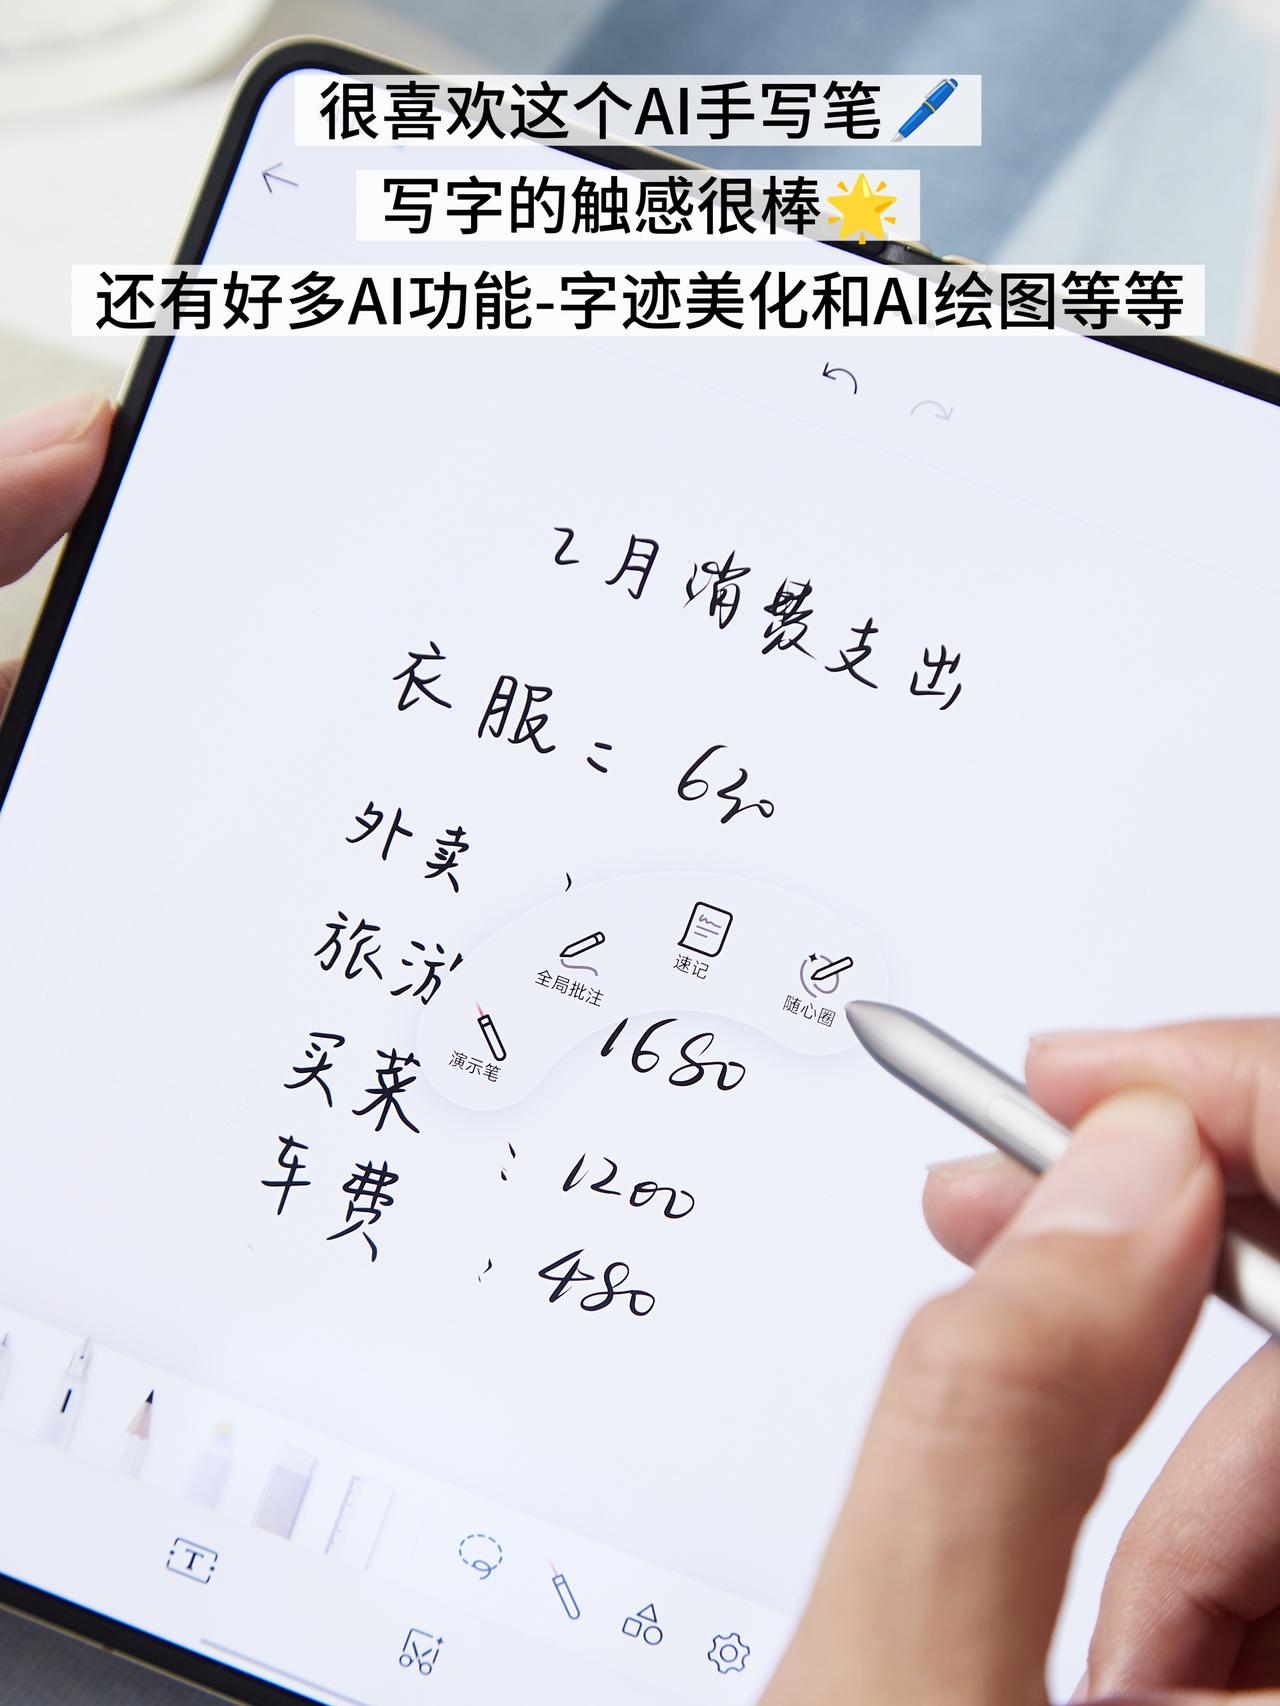 很喜欢这个AI手写笔🖊️
写字的触感很棒🌟
还有好多AI功能-字迹美化和AI绘图等等
2月消费支出
衣服：630
外卖：
旅游
全局批注
速记
随心圈
演示笔
1680
买菜：1200
车费：480
T